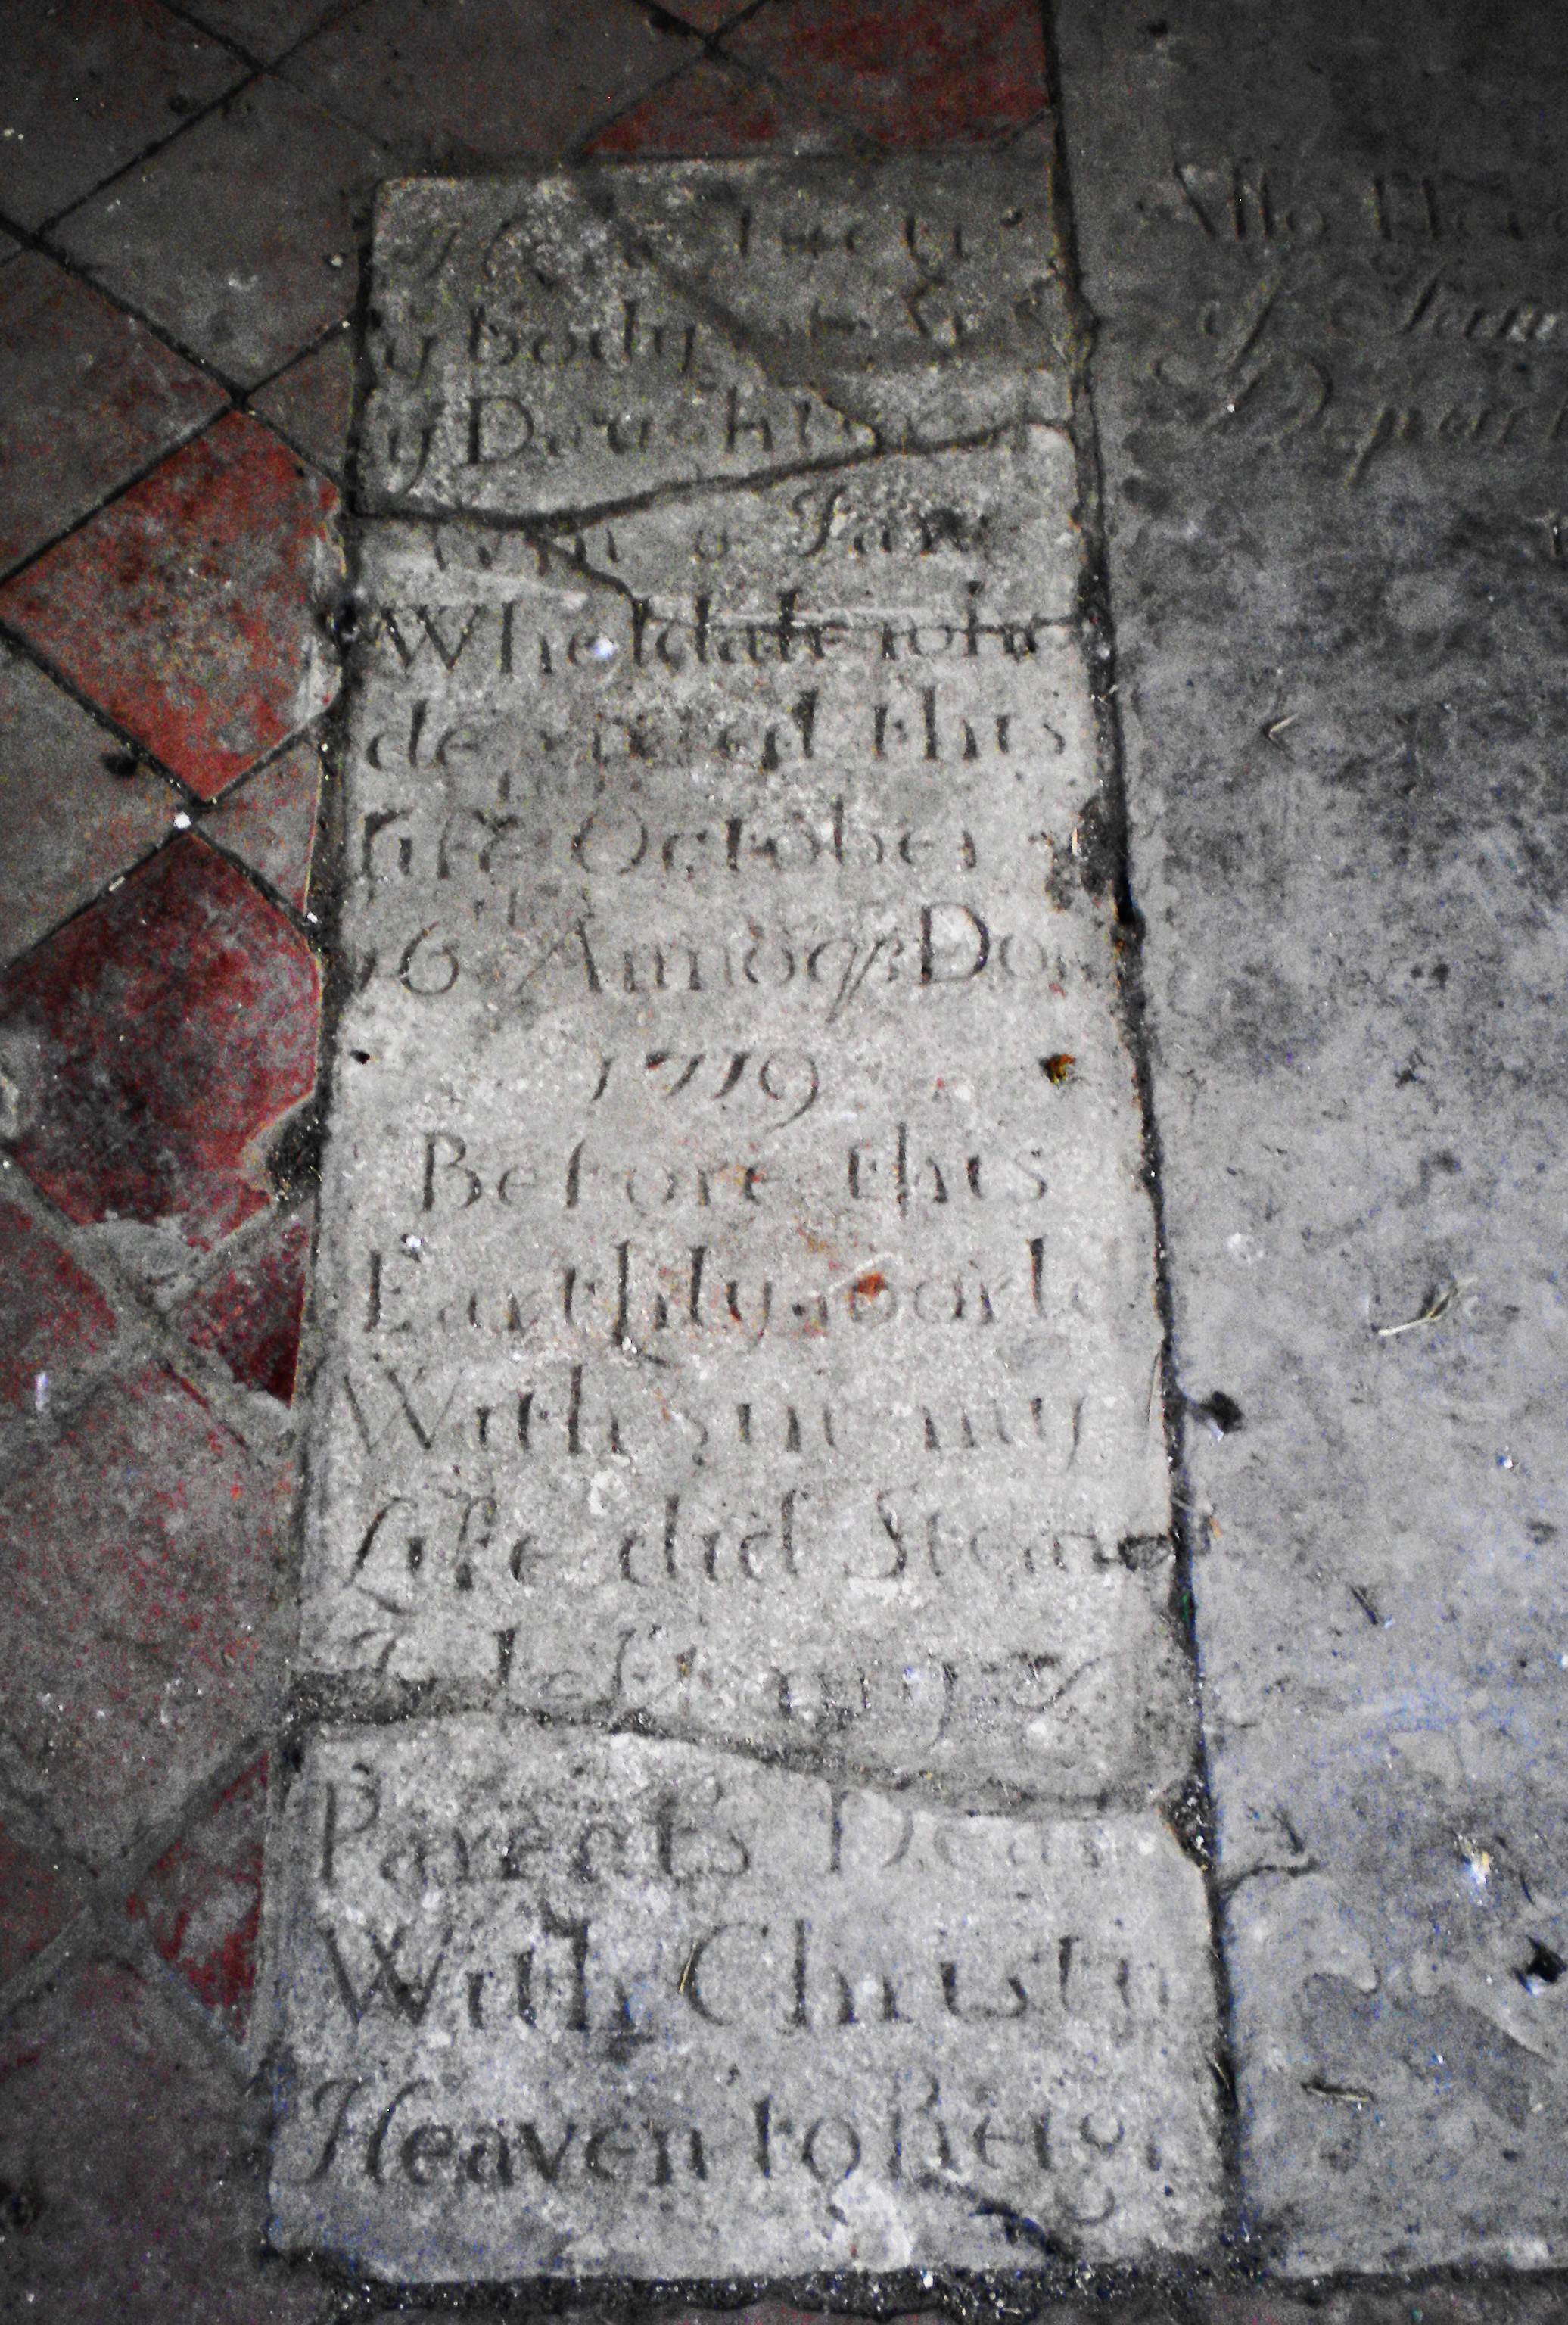 Here Lyeth
y Body of
y Daughter
& Jane
Wheldale who
departed this
Life October
Anno Dom
1719
Before this
Earthly world
With sin my
Life did Stean
I left my
Parents Dear
With Christ in
Heaven to Reign
Also Here
of
Depar